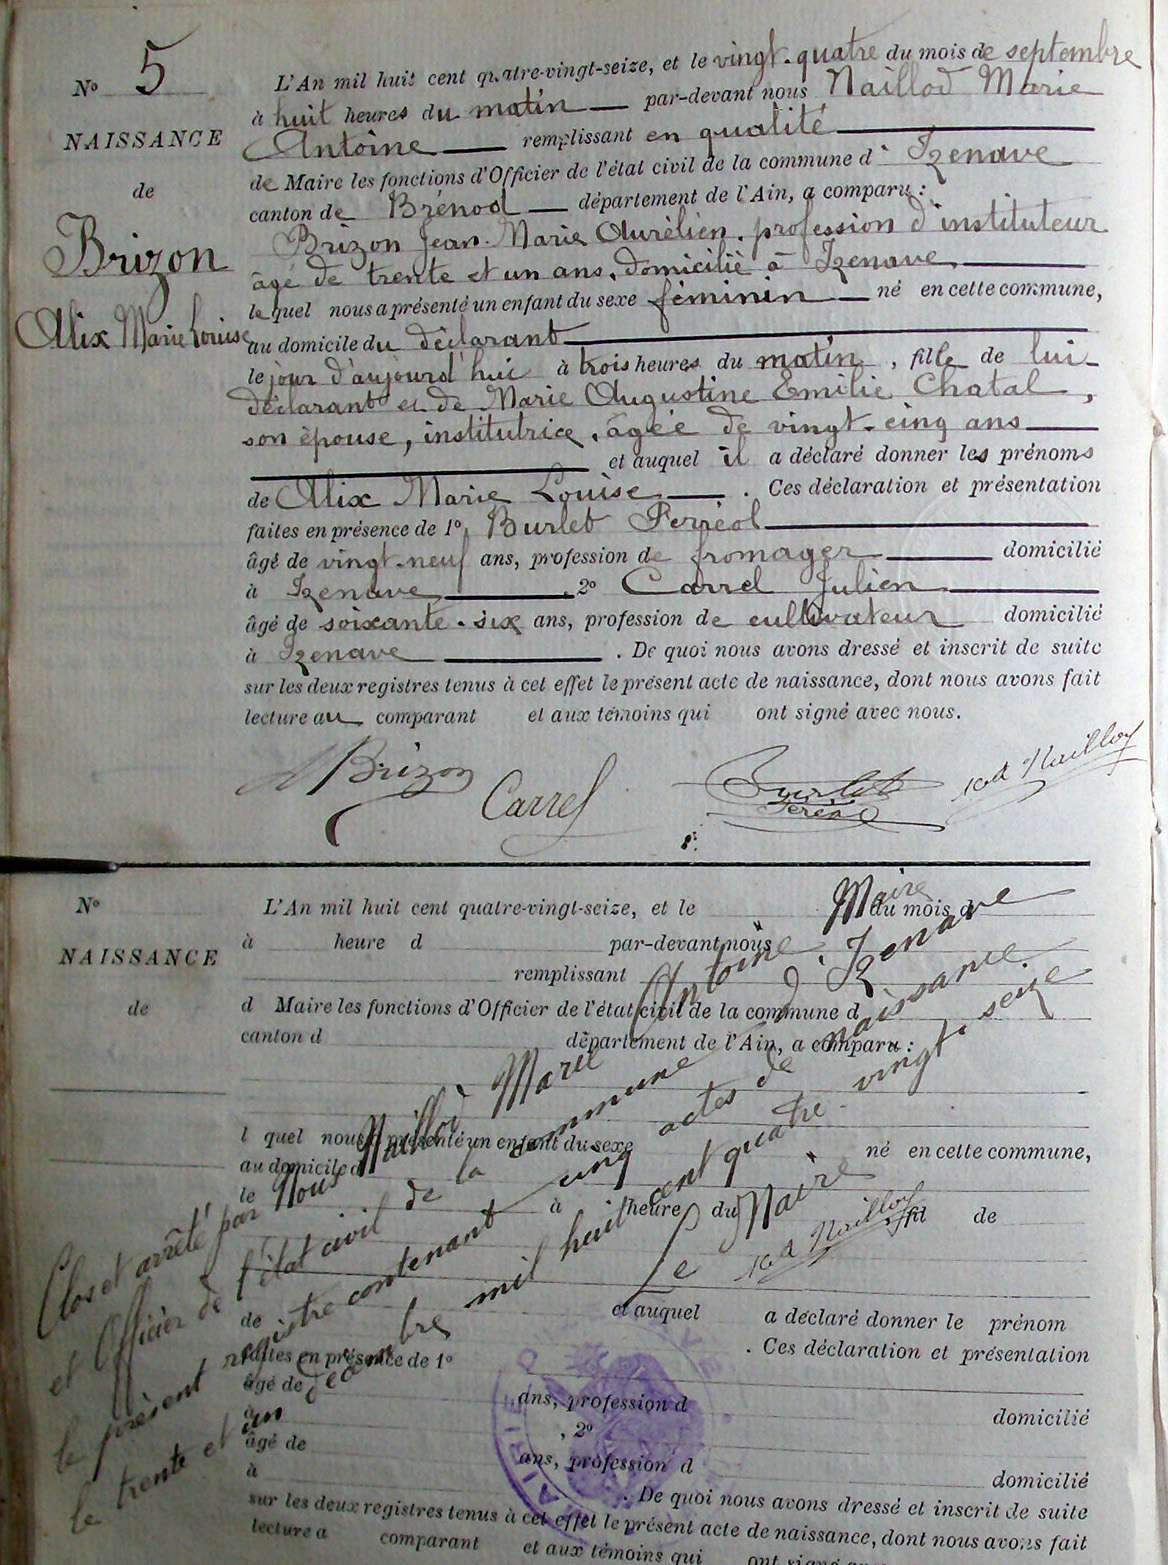 No 5
NAISSANCE
de
Brizon
Alix Marie Louise
L'An mil huit cent quatre-vingt-seize, et le vingt-quatre du mois de septembre
à huit heures du matin par-devant nous Naillod Marie
Antoine remplissant en qualité
de Maire les fonctions d'Officier de l'état civil de la commune d' Izenave
canton de Brénod département de l'Ain, a comparu :
Brizon Jean-Marie Aurélien, profession d'instituteur
âgé de trente et un ans, domicilié à Izenave
lequel nous a présenté un enfant du sexe féminin né en cette commune,
au domicile du déclarant
le jour d'aujourd'hui à trois heures du matin, fille de lui
déclarant et de Marie Augustine Emilie Chatal,
son épouse, institutrice, âgée de vingt-cinq ans
et auquel il a déclaré donner les prénoms
de Alix Marie Louise. Ces déclaration et présentation
faites en présence de 1o Burlet Ferréol
âgé de vingt-neuf ans, profession de fromager domicilié
à Izenave, 2o Carrel Julien
âgé de soixante-six ans, profession de cultivateur domicilié
à Izenave. De quoi nous avons dressé et inscrit de suite
sur les deux registres tenus à cet effet le présent acte de naissance, dont nous avons fait
lecture au comparant et aux témoins qui ont signé avec nous.
Brizon Carrel Burlet Naillod
Ferréol
No
NAISSANCE
de
L'An mil huit cent quatre-vingt-seize, et le du mois d
à heure d par-devant nous
remplissant
d Maire les fonctions d'Officier de l'état civil de la commune d
canton d département de l'Ain, a comparu :
l quel nous a présenté un enfant du sexe né en cette commune,
au domicile d
le à heure du fil de
et auquel a déclaré donner le prénom
de . Ces déclaration et présentation
faites en présence de 1o
âgé de ans, profession d domicilié
à , 2o
âgé de ans, profession d domicilié
à . De quoi nous avons dressé et inscrit de suite
sur les deux registres tenus à cet effet le présent acte de naissance, dont nous avons fait
lecture a comparant et aux témoins qui
Clos et arrêté par Nous Naillod Marie Antoine Maire
et Officier de l'état civil de la commune d'Izenave
le présent registre contenant cinq actes de naissance.
le trente et un décembre mil huit cent quatre-vingt-seize
Le Maire
Naillod